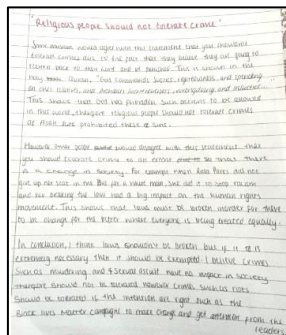 "Religious people should not tolerate crime"
Some muslims would agree with this statement that you shouldnt
tolerate crimes due to the fact that they believe they are going to
return back to their lord and be punished. This is shown in the
holy Quran, "God commands justice, righteousness, and spending
on ones relatives, and forbids licentiousness, wrongdoing and injustice".
This shows that God has forbidden such actions to be allowed
in this world, therefore religious people should not tolerate crimes
as Allah has prohibited these sins.
However other people would disagree with this statement that
you should tolerate crime to an extent as there
is a change in society. For example when Rosa Parks did not
give up her seat in the bus for a white man, she did it to stop racism
and her breaking the law had a big impact on the human rights
movement. This shows that laws must be broken inorder for there
to be change for the better where everyone is being treated equally.
In conclusion, I think laws shouldn't be broken but if it is
extremely necessary then it should be exempted. I believe crimes
such as murdering and sexual assault have no impact in society
therefore should not be tolerated however crimes such as riots
should be tolerated if the intention are right such as the
Black lives matter campaign to make change and get attention from the
leaders.